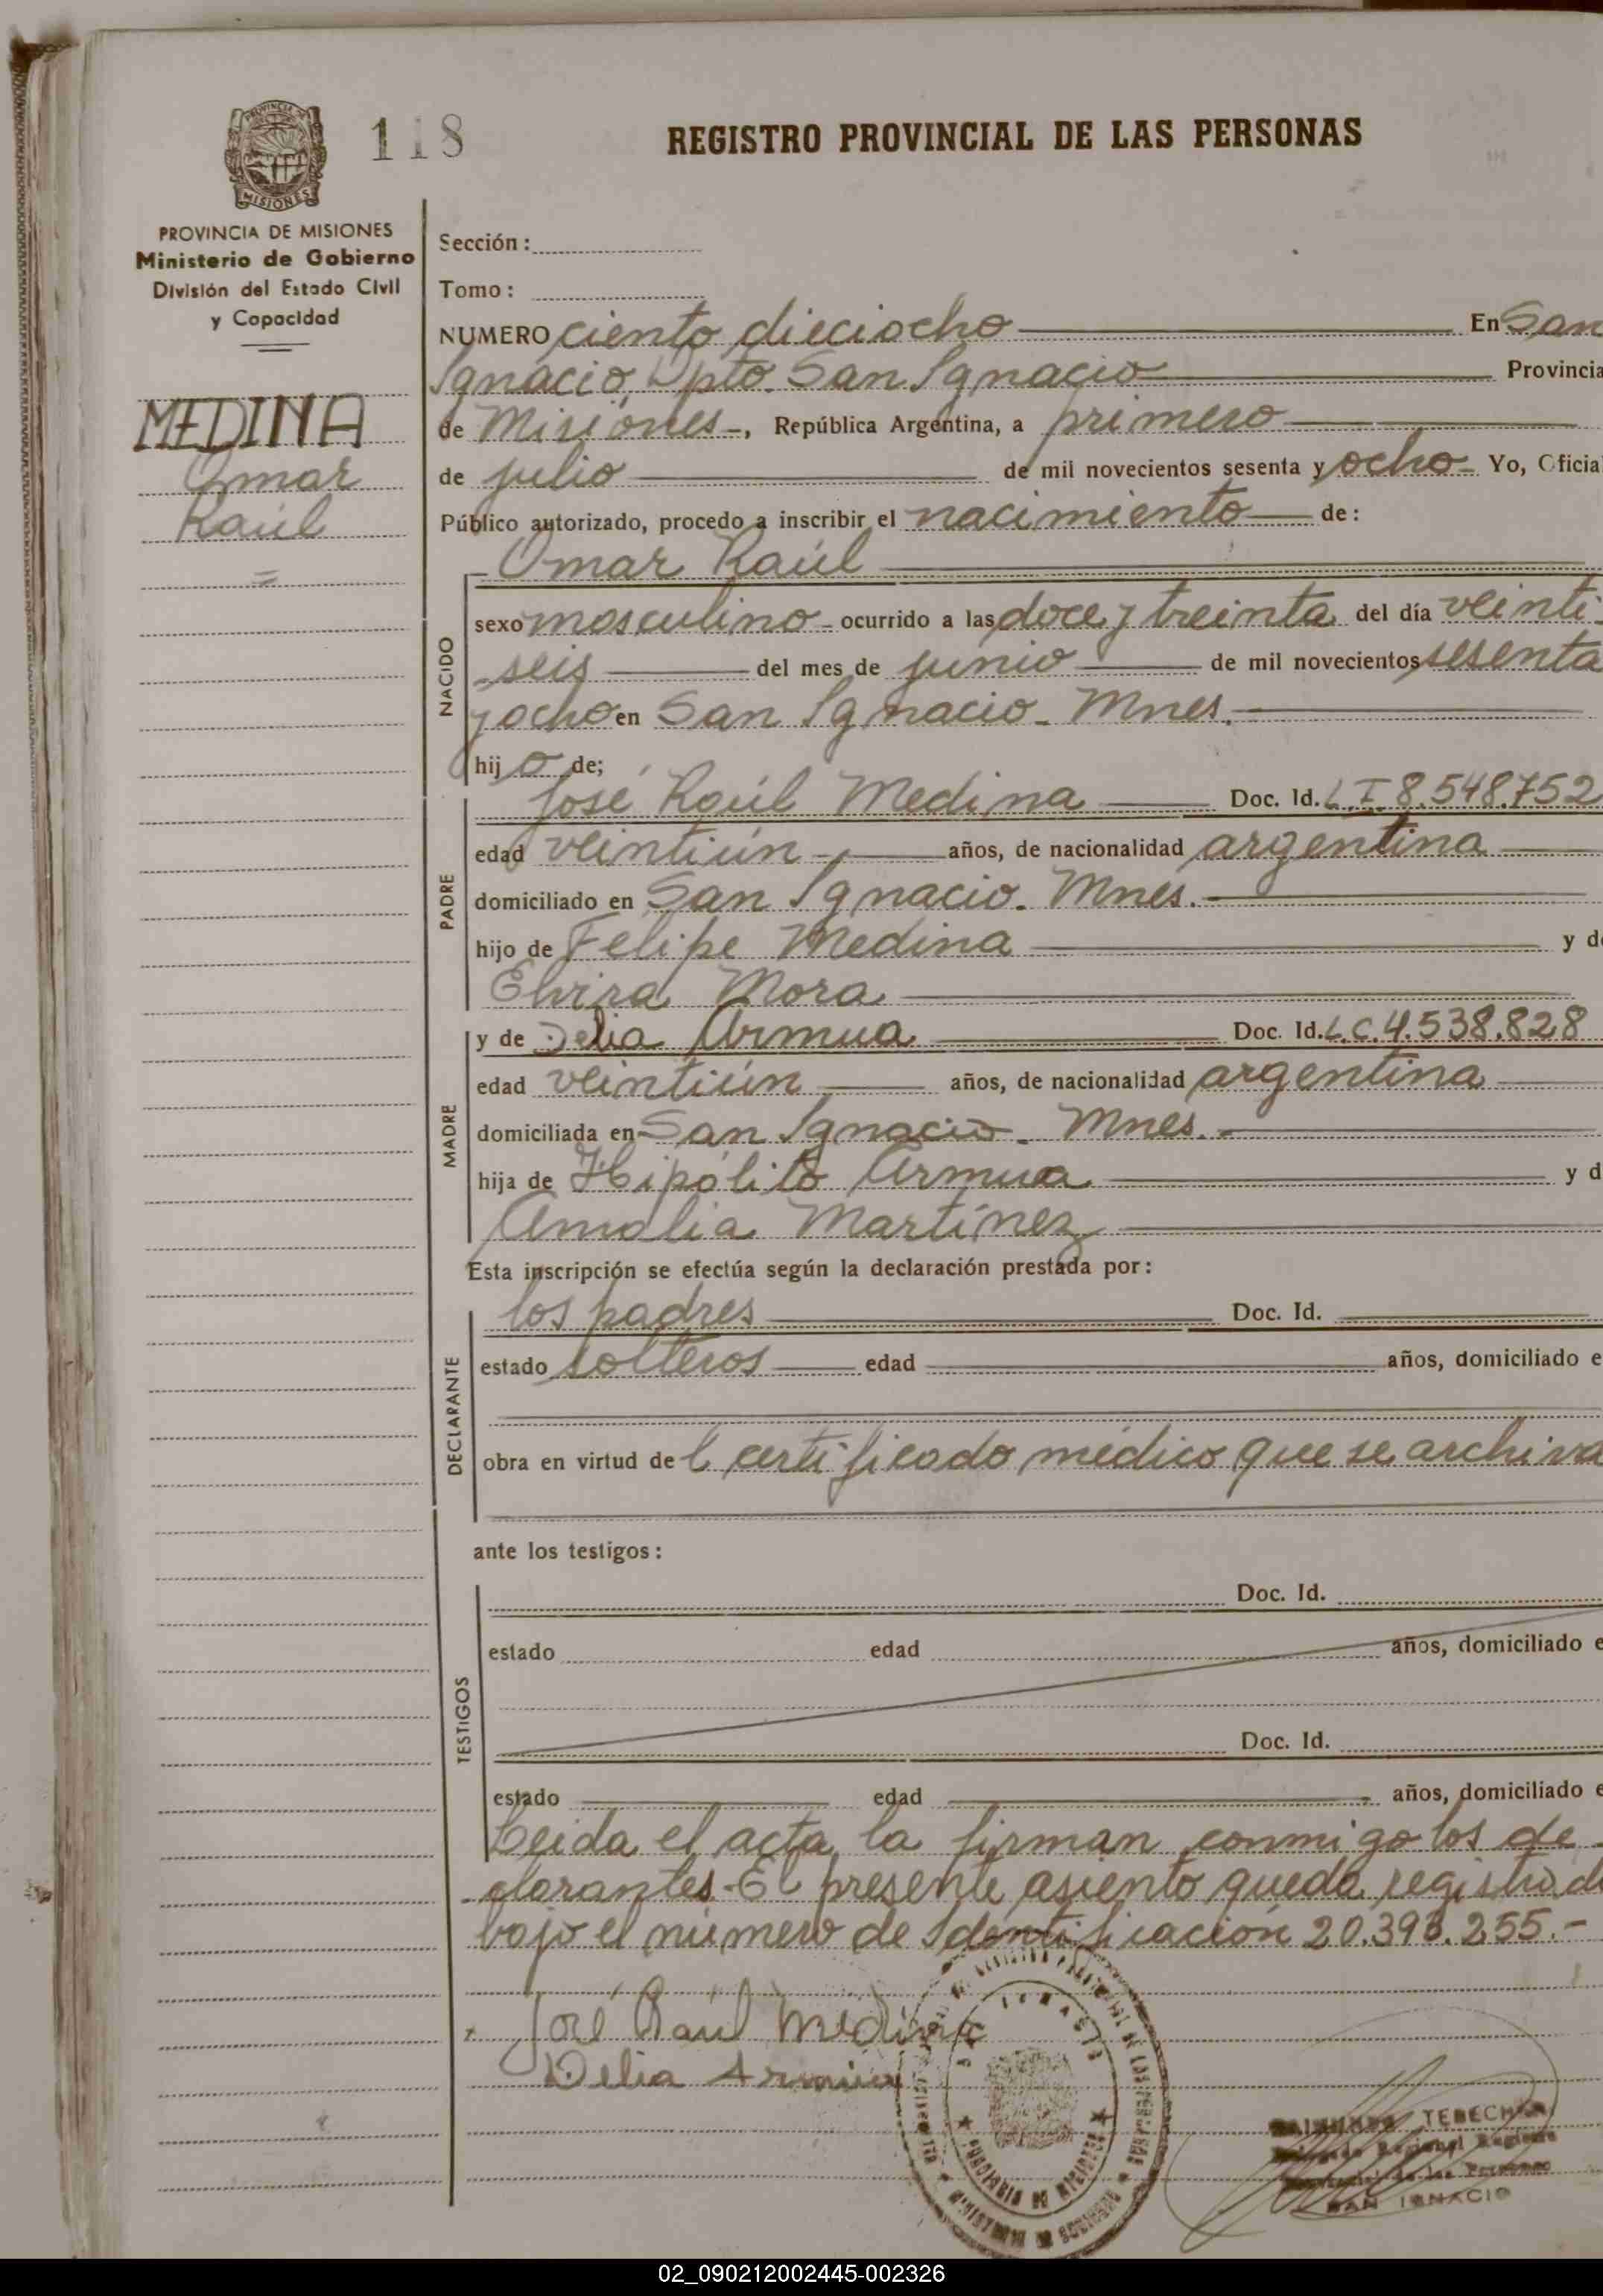 118
REGISTRO PROVINCIAL DE LAS PERSONAS
PROVINCIA DE MISIONES
Ministerio de Gobierno
División del Estado Civil
y Capacidad
MEDINA
Omar
Raúl
=
Sección:
Tomo:
NUMERO ciento dieciocho En San
Ignacio, Dpto. San Ignacio Provincia
de Misiones -, República Argentina, a primero
de julio de mil novecientos sesenta y ocho - Yo, Oficial
Público autorizado, procedo a inscribir el nacimiento de:
- Omar Raúl
NACIDO
sexo masculino - ocurrido a las doce y treinta del día veinti-
seis del mes de junio de mil novecientos sesenta
y ocho en San Ignacio - Mnes.
hijo de;
PADRE
José Raúl Medina Doc. Id. L.I. 8.548.752
edad veintiún - años, de nacionalidad argentina
domiciliado en San Ignacio - Mnes.
hijo de Felipe Medina y de
Elvira Mora
MADRE
y de Delia Armua Doc. Id. L.C. 4.538.828
edad veintiún años, de nacionalidad argentina
domiciliada en San Ignacio - Mnes.
hija de Hipólito Armua y d
Amalia Martínez
Esta inscripción se efectúa según la declaración prestada por:
DECLARANTE
los padres Doc. Id.
estado solteros edad años, domiciliado e
obra en virtud de l certificado médico que se archiva
ante los testigos:
TESTIGOS
Doc. Id.
estado edad años, domiciliado e
Doc. Id.
estado edad años, domiciliado e
Leida el acta, la firman conmigo los de-
clarantes. El presente asiento queda registrad
bajo el número de Identificación 20.393.255.-
José Raúl Medina
Delia Armua
TEBECHR
SAN IGNACIO
02_090212002445-002326